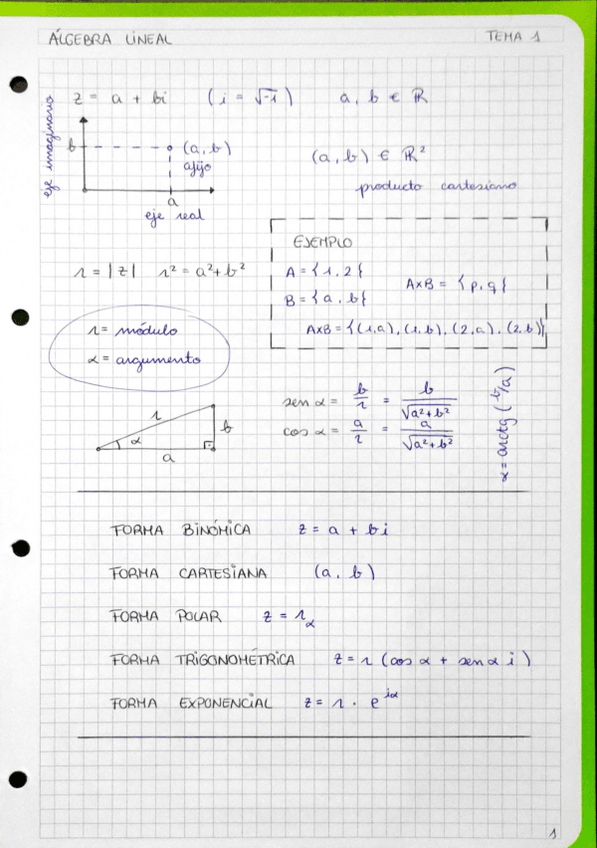 ÁLGEBRA LINEAL TEMA 1
z = a + bi ( i = √-1 ) a, b ∈ ℝ
eje imaginario
b
(a, b)
afijo
a
eje real
(a, b) ∈ ℝ²
producto cartesiano
r = |z| r² = a² + b²
r = módulo
α = argumento
EJEMPLO
A = {1, 2}
B = {a, b}
AxB = {p, q}
AxB = {(1,a), (1,b), (2,a), (2,b)}
r
α
b
a
sen α = b/r = b/√a²+b²
cos α = a/r = a/√a²+b²
α = arctg (b/a)
FORMA BINÓMICA z = a + bi
FORMA CARTESIANA (a, b)
FORMA POLAR z = r_α
FORMA TRIGONOMÉTRICA z = r (cos α + sen α i)
FORMA EXPONENCIAL z = r · e^iα
1